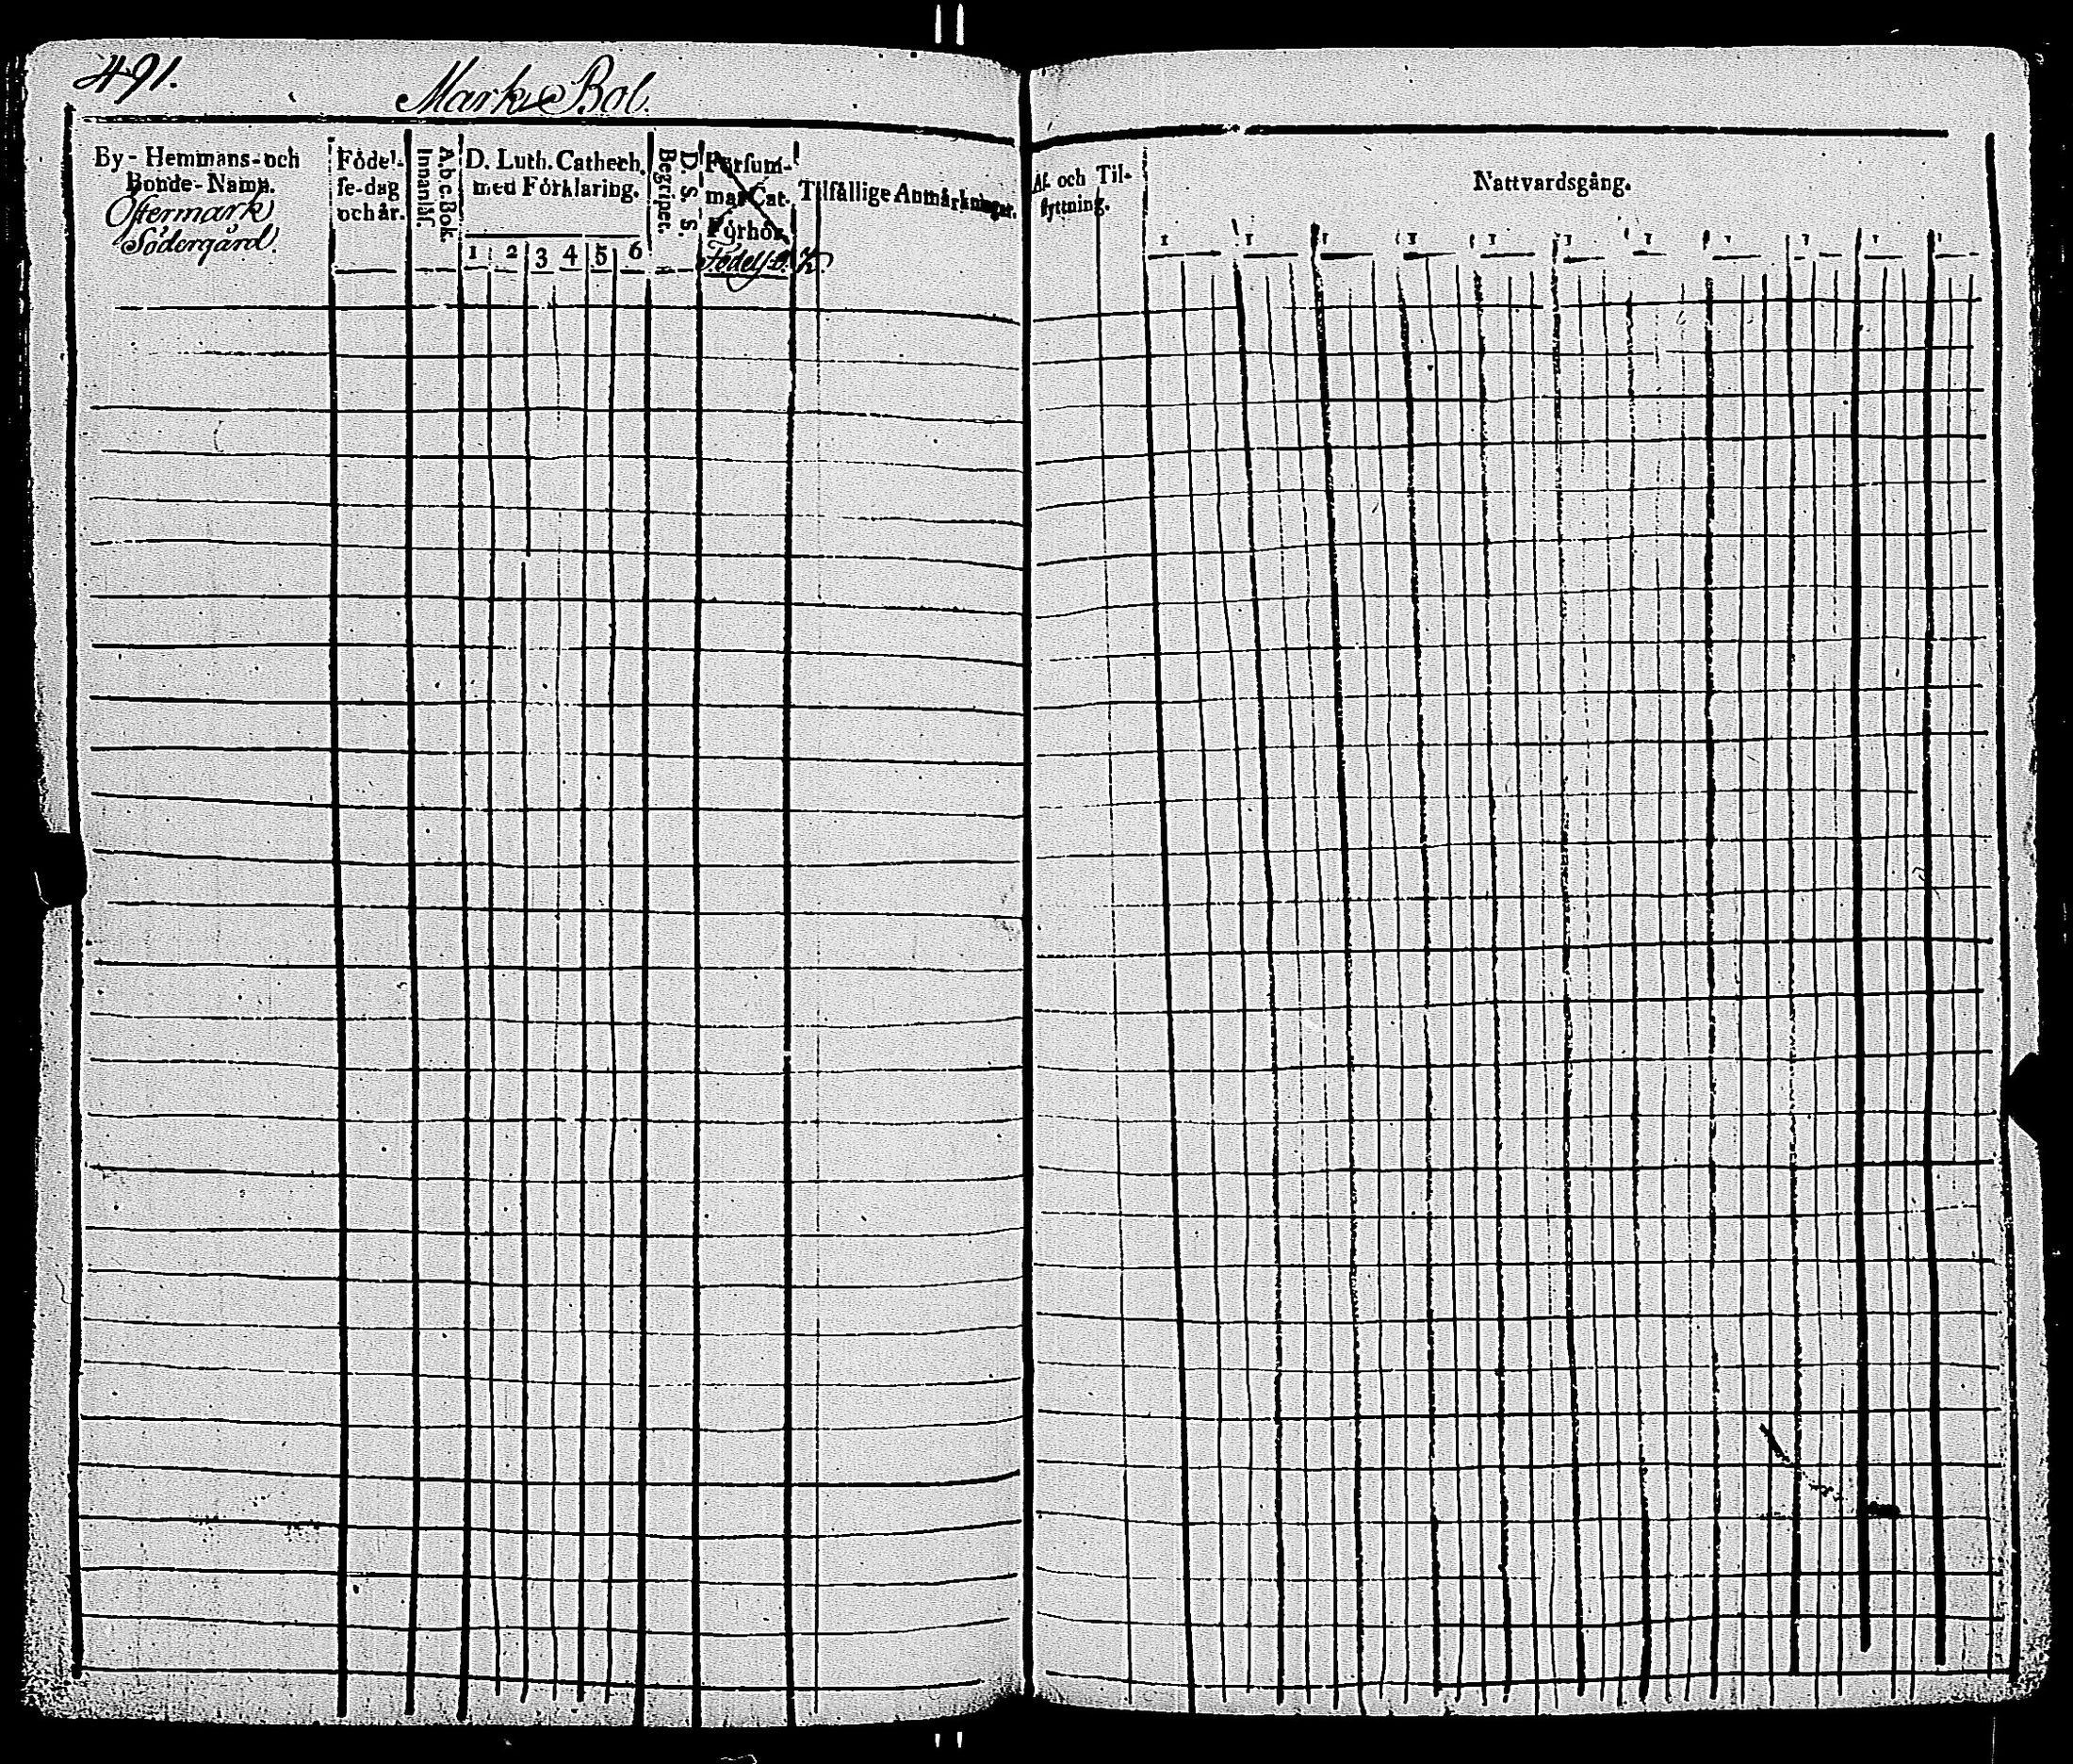 491.
Mark Bol.
By-Hemmans-och
Bonde-Namn.
Östermark
Södergård.
Födel-
se-dag
och år.
A.b.c. Bok.
Innanläs.
D. Luth. Cathech.
med Förklaring.
1 2 3 4 5 6
D. S. S.
Begripet.
Försum-
mat Cat.
Förhör
Födelse O.
Tilfällige Anmärkningar.
Af- och Til-
flyttning.
Nattvardsgång.
1 1 1 1 1 1 1 1 1 1 1